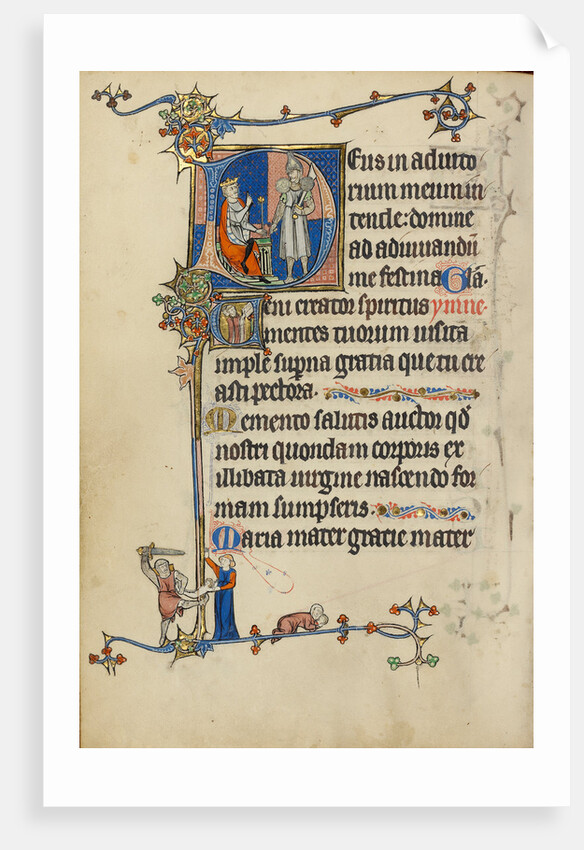 Deus in adiuto
rium meum in
tende: domine
ad adiuuandū
me festina Glā.
Ueni creator spiritus ymne.
mentes tuorum uisita
imple superna gratia que tu cre
asti pectora.
Memento salutis auctor qd̄
nostri quondam corporis ex
illibata uirgine nascendo for
mam sumpseris.
Maria mater gratie mater